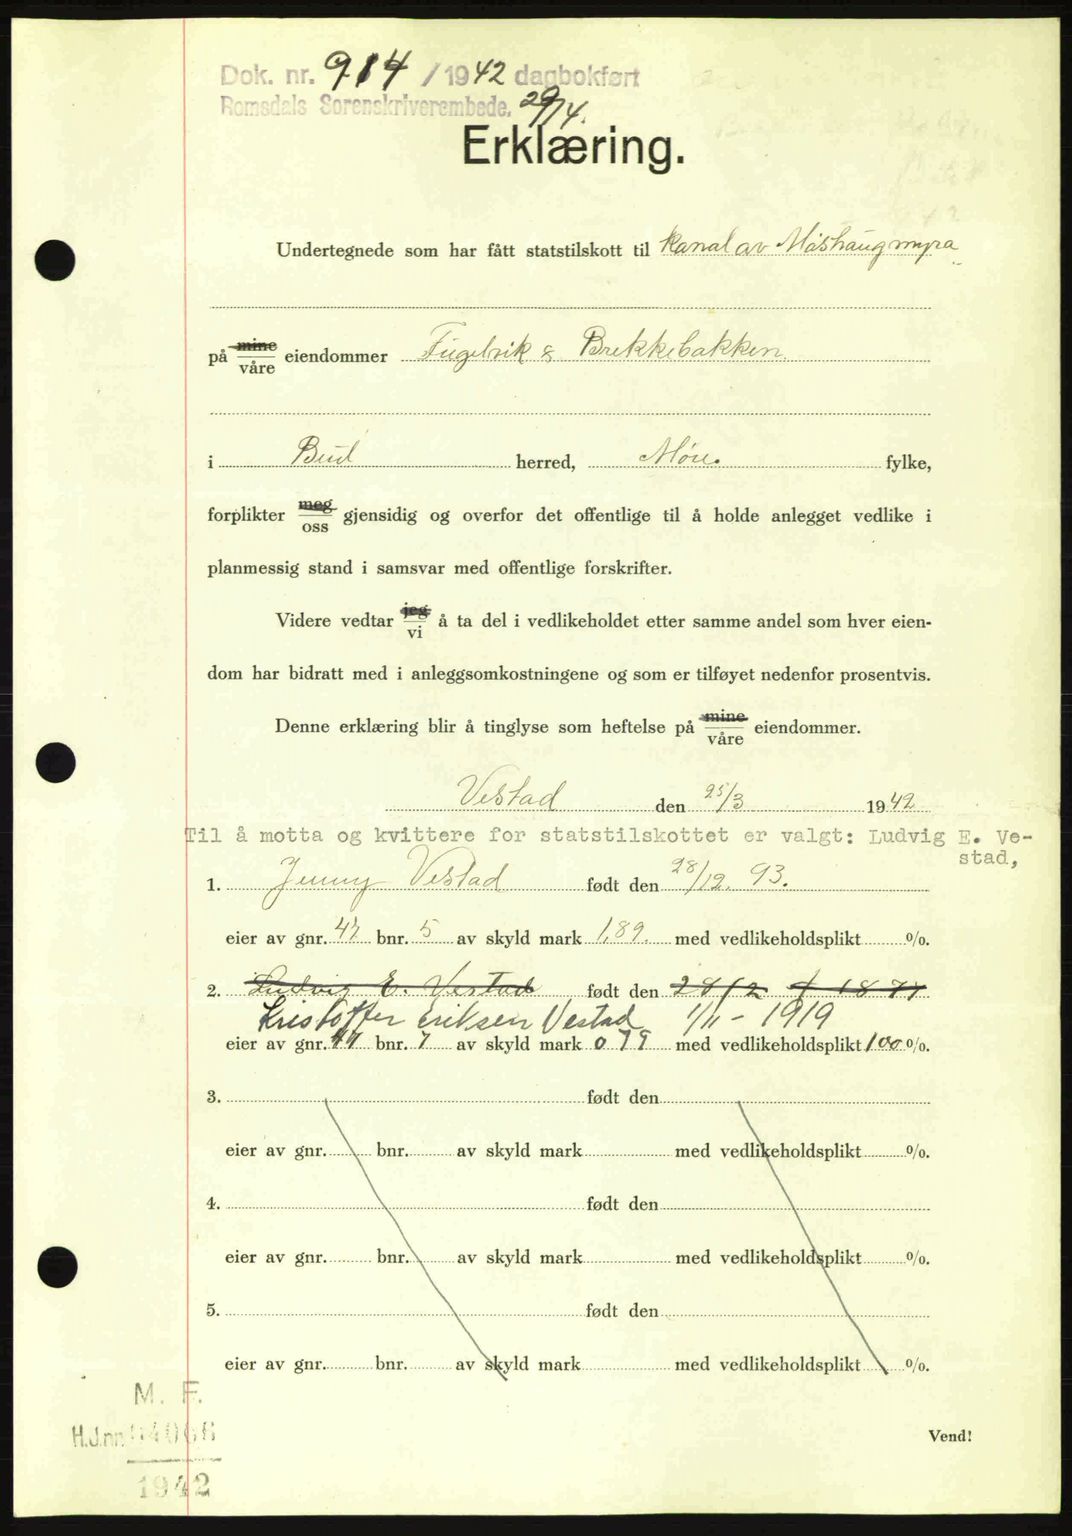 Dok. nr. 914 / 1942 dagbokført
Romsdals Sorenskriverembede. 29/4.
Erklæring.
Undertegnede som har fått statstilskott til kanal av Måshaugmyra
på mine/våre eiendommer Fugelvik & Brekkebakken
i Bud herred, Møre fylke,
forplikter meg/oss gjensidig og overfor det offentlige til å holde anlegget vedlike i
planmessig stand i samsvar med offentlige forskrifter.
Videre vedtar jeg/vi å ta del i vedlikeholdet etter samme andel som hver eien-
dom har bidratt med i anleggsomkostningene og som er tilføyet nedenfor prosentvis.
Denne erklæring blir å tinglyse som heftelse på mine/våre eiendommer.
Vestad den 25/3 1942
Til å motta og kvittere for statstilskottet er valgt: Ludvig E. Ve-
stad,
1. Jenny Vestad født den 28/12. 93.
eier av gnr. 47 bnr. 5 av skyld mark 1,89. med vedlikeholdsplikt %.
2. Ludvig E. Vestad født den 28/2 1871
Kristoffer Eriksen Vestad 1/11 - 1919
eier av gnr. 47 bnr. 7 av skyld mark 0 79 med vedlikeholdsplikt 100 %.
3. født den
eier av gnr. bnr. av skyld mark med vedlikeholdsplikt %.
4. født den
eier av gnr. bnr. av skyld mark med vedlikeholdsplikt %.
5. født den
eier av gnr. bnr. av skyld mark med vedlikeholdsplikt %.
M. F.
H.J.nr. 04066
1942
Vend!